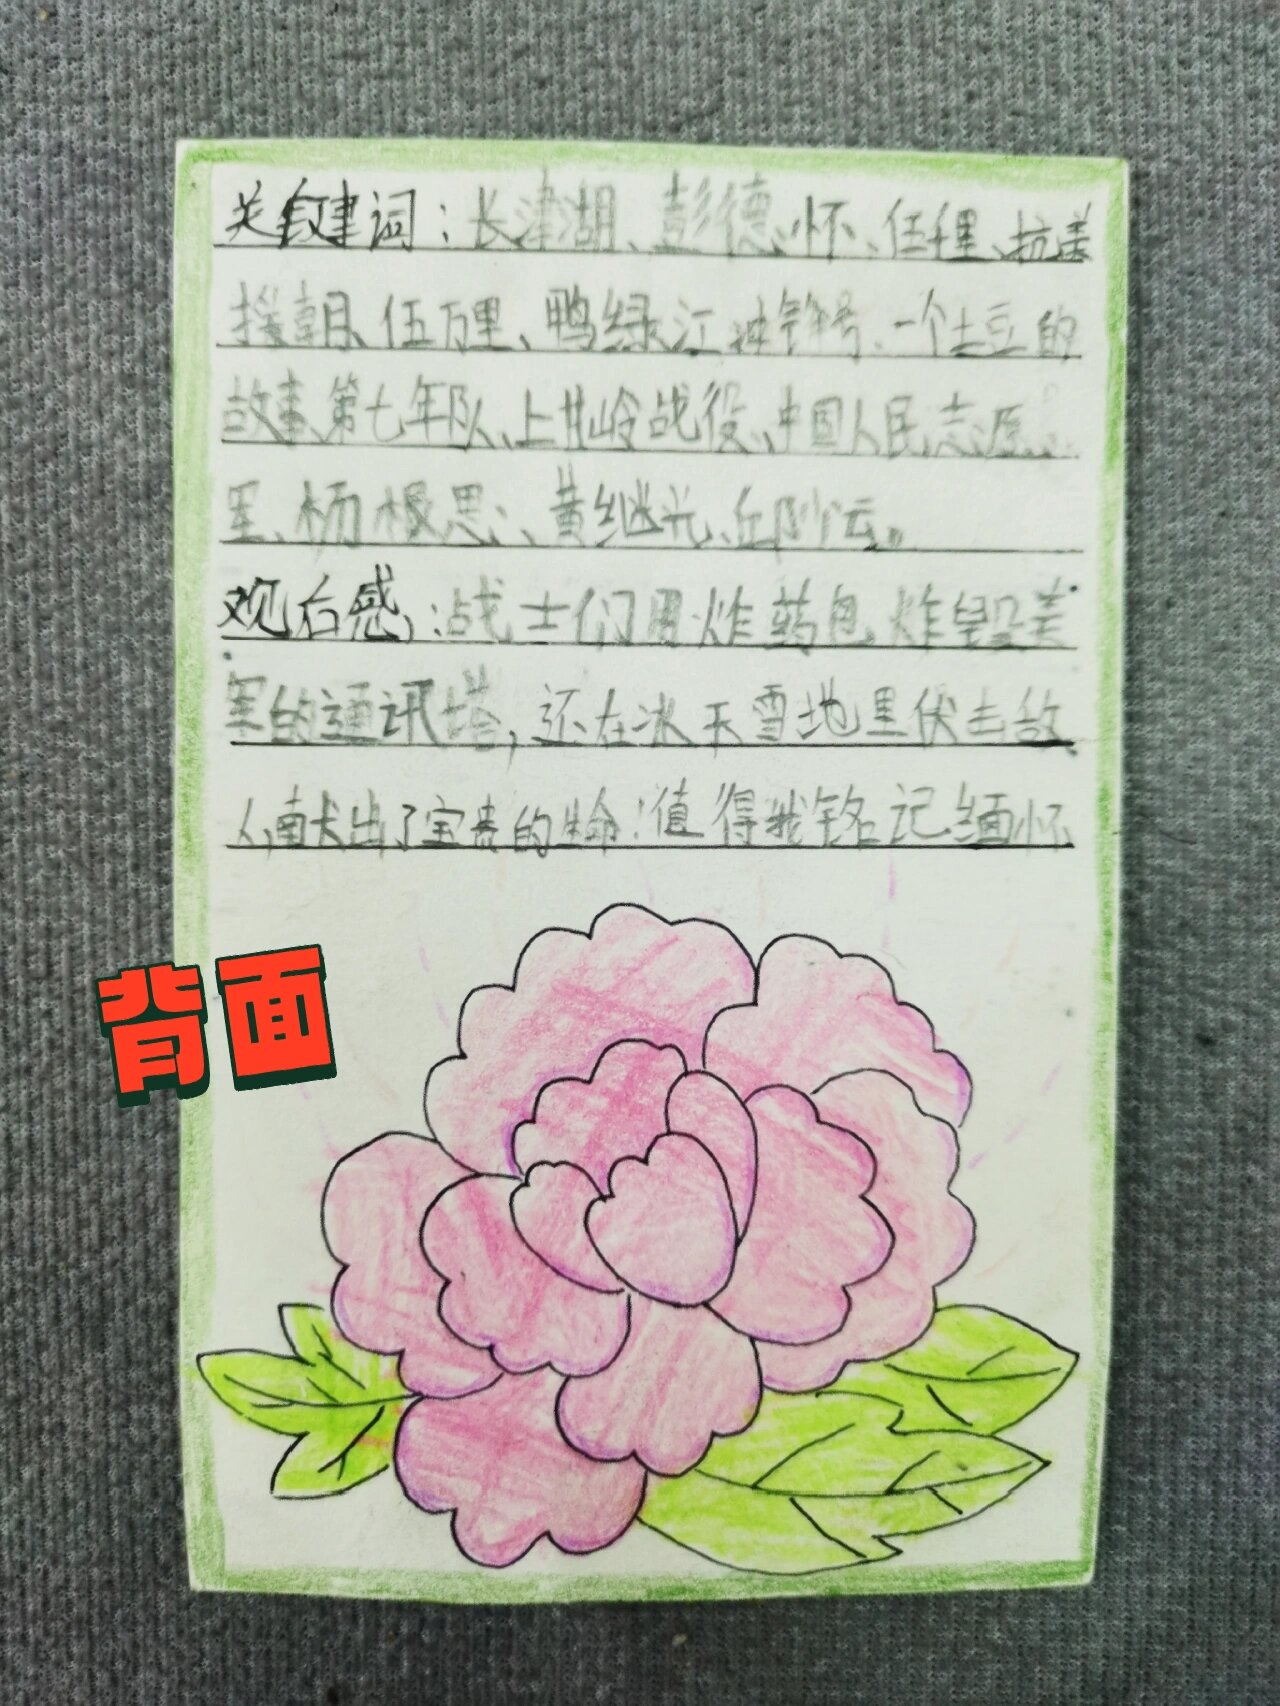 关键词：长津湖、彭德怀、伍千里、抗美
援朝、伍万里、鸭绿江、冲锋号、一个土豆的
故事、第七年队、上甘岭战役、中国人民志愿
军、杨根思、黄继光、邱少云。
观后感：战士们用炸药包炸毁美
军的通讯塔，还在冰天雪地里伏击敌
人，献出了宝贵的生命！值得我铭记缅怀
背面